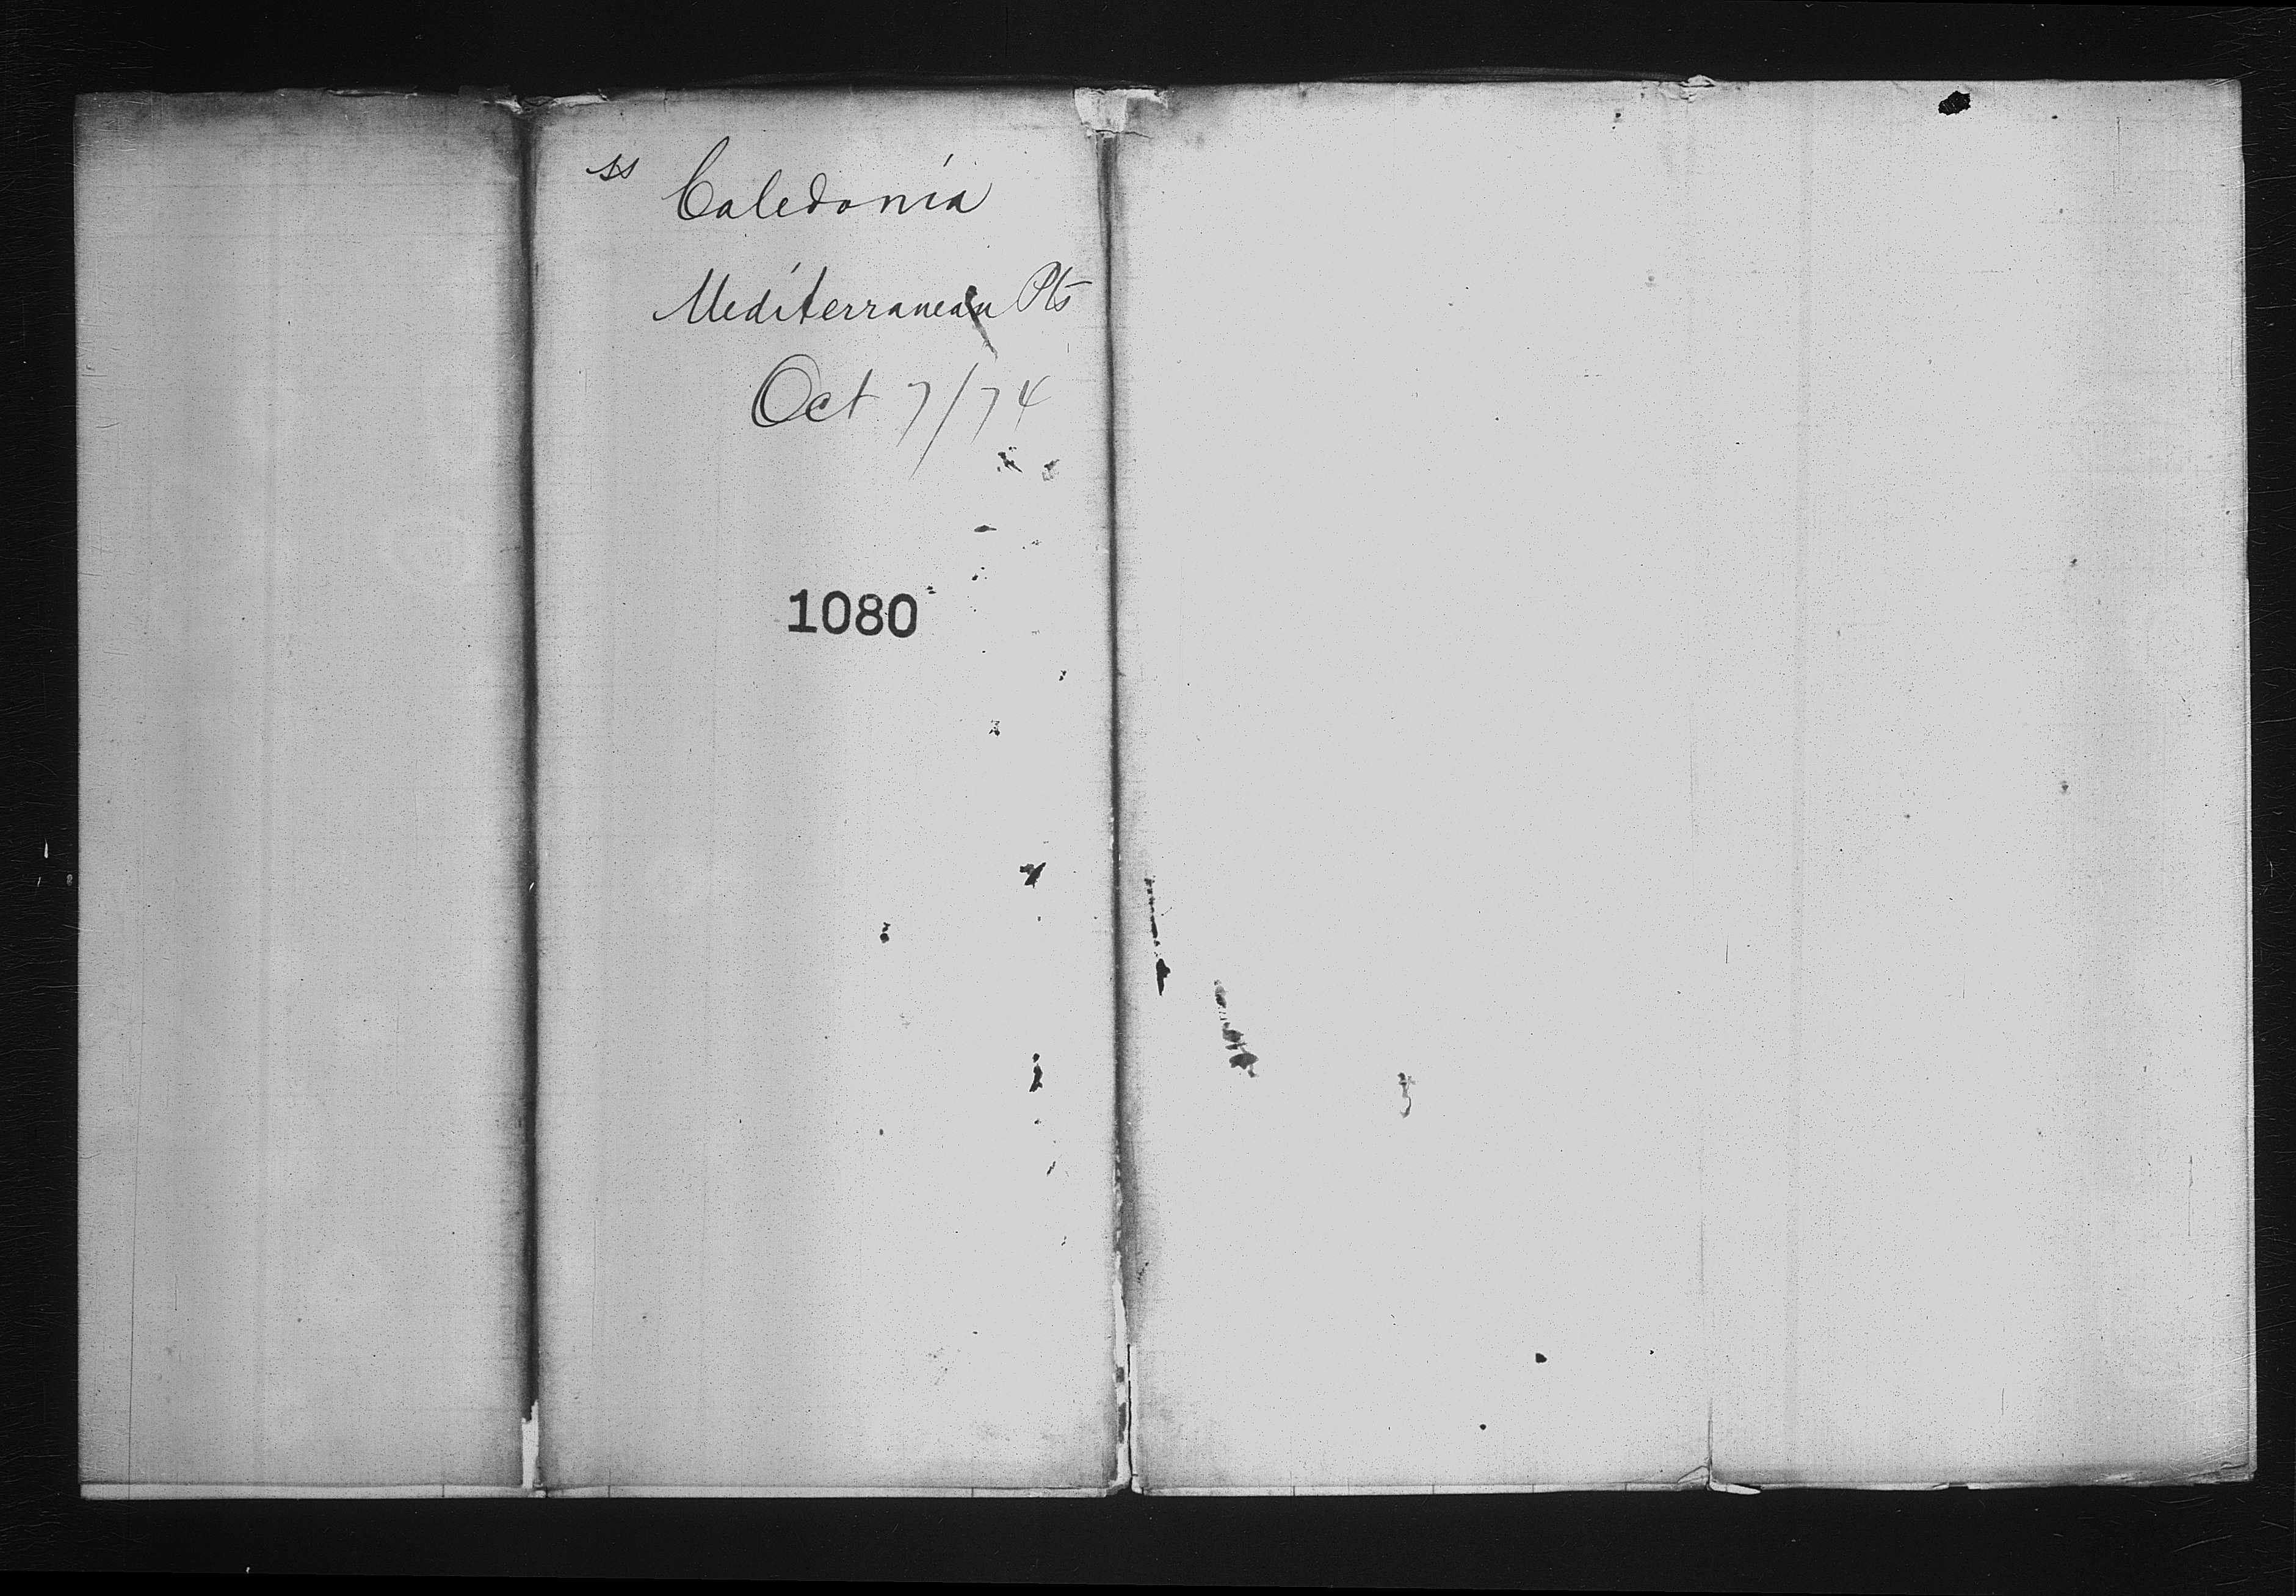 ss Caledonia
Mediterranean Pts
Oct 7/74
1080